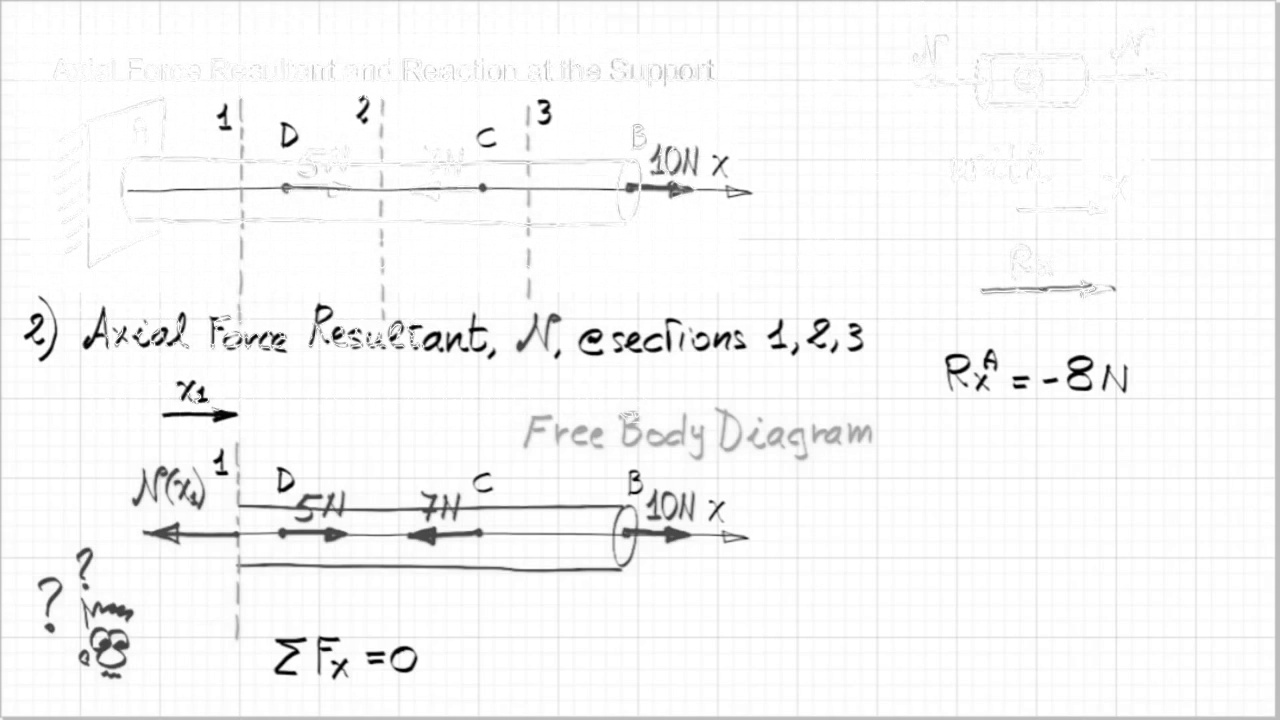 Axial Force Resultant and Reaction at the Support
N N
+
1 2 3
A D C B
5N 7N 10N x
x
Rx
2) Axial Force Resultant, N, @sections 1, 2, 3
RxA = -8N
x1
Free Body Diagram
1
N(x1) D C B
5N 7N 10N x
?
?
ΣFx = 0